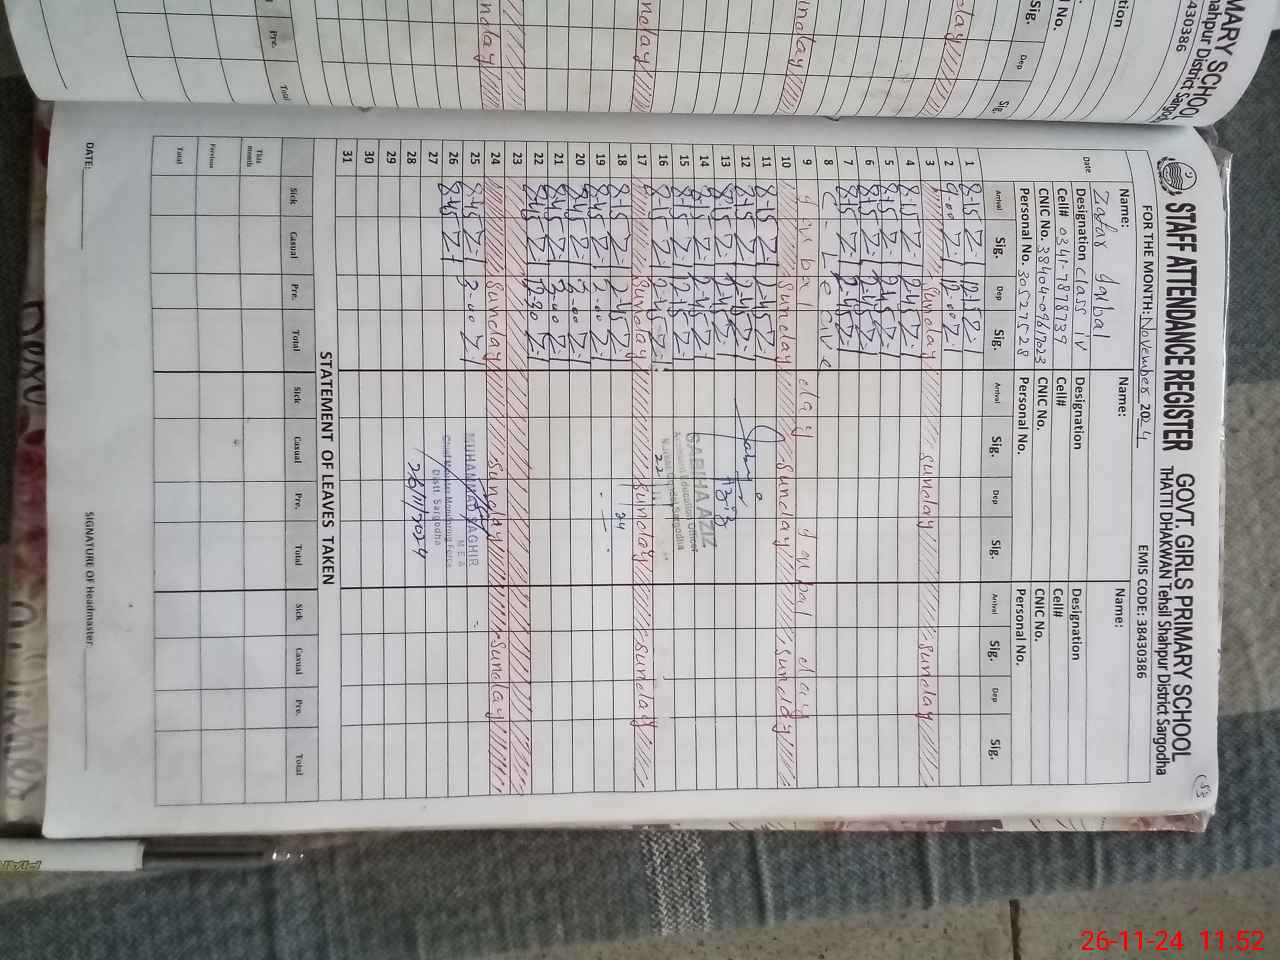 STAFF ATTENDANCE REGISTER
GOVT. GIRLS PRIMARY SCHOOL
THATTI DHAKWAN Tehsil Shahpur District Sargodha
FOR THE MONTH: November 2024
EMIS CODE: 38430386
53
Name: Zafar Iqbal
Designation class iv
Cell# 0341-7878739
CNIC No. 38404-0961702-3
Personal No. 30527528
Name:
Designation
Cell#
CNIC No.
Personal No.
Name:
Designation
Cell#
CNIC No.
Personal No.
Date Arrival Sig. Dep Sig. Arrival Sig. Dep Sig. Arrival Sig. Dep Sig.
1 8-15 Z-I 12-15 Z-I
2 9-00 Z-I 12-00 Z-I
3 sunday sunday sunday
4 8-15 Z-I 2-45 Z-I
5 8-15 Z-I 2-45 Z-I
6 8-15 Z-I 2-45 Z-I
7 8-15 Z-I 2-45 Z-I
8 C - Leave
9 Iqbal day Iqbal day
10 sunday sunday sunday
11 8-15 Z-I 2-45 Z-I
12 8-15 Z-I 2-45 Z-I
13 8-15 Z-I 2-45 Z-I
14 8-15 Z-I 12-15 Z-I
15 8-15 Z-I 12-15 Z-I
16 8-15 Z-I 2-45 Z-I
17 sunday sunday sunday
18 8-15 Z-I 2-45 Z-I
19 8-45 Z-I 2-00 Z-I
20 8-45 Z-I 3-00 Z-I
21 8-45 Z-I 3-00 Z-I
22 8-45 Z-I 12-30 Z-I
23
24 sunday sunday sunday
25 8-45 Z-I 3-00 Z-I
26 8-45 Z-I
27
28
29
30
31
SABIHA AZIZ
Assistant Education Officer
Sargodha
MUHAMMAD SAGHIR
M E A
Chief Minister Monitoring Force
Distt. Sargodha
26/11/2024
STATEMENT OF LEAVES TAKEN
Sick Casual Pre. Total Sick Casual Pre. Total Sick Casual Pre. Total
This month
Previous
Total
DATE:
SIGNATURE OF Headmaster
26-11-24 11:52